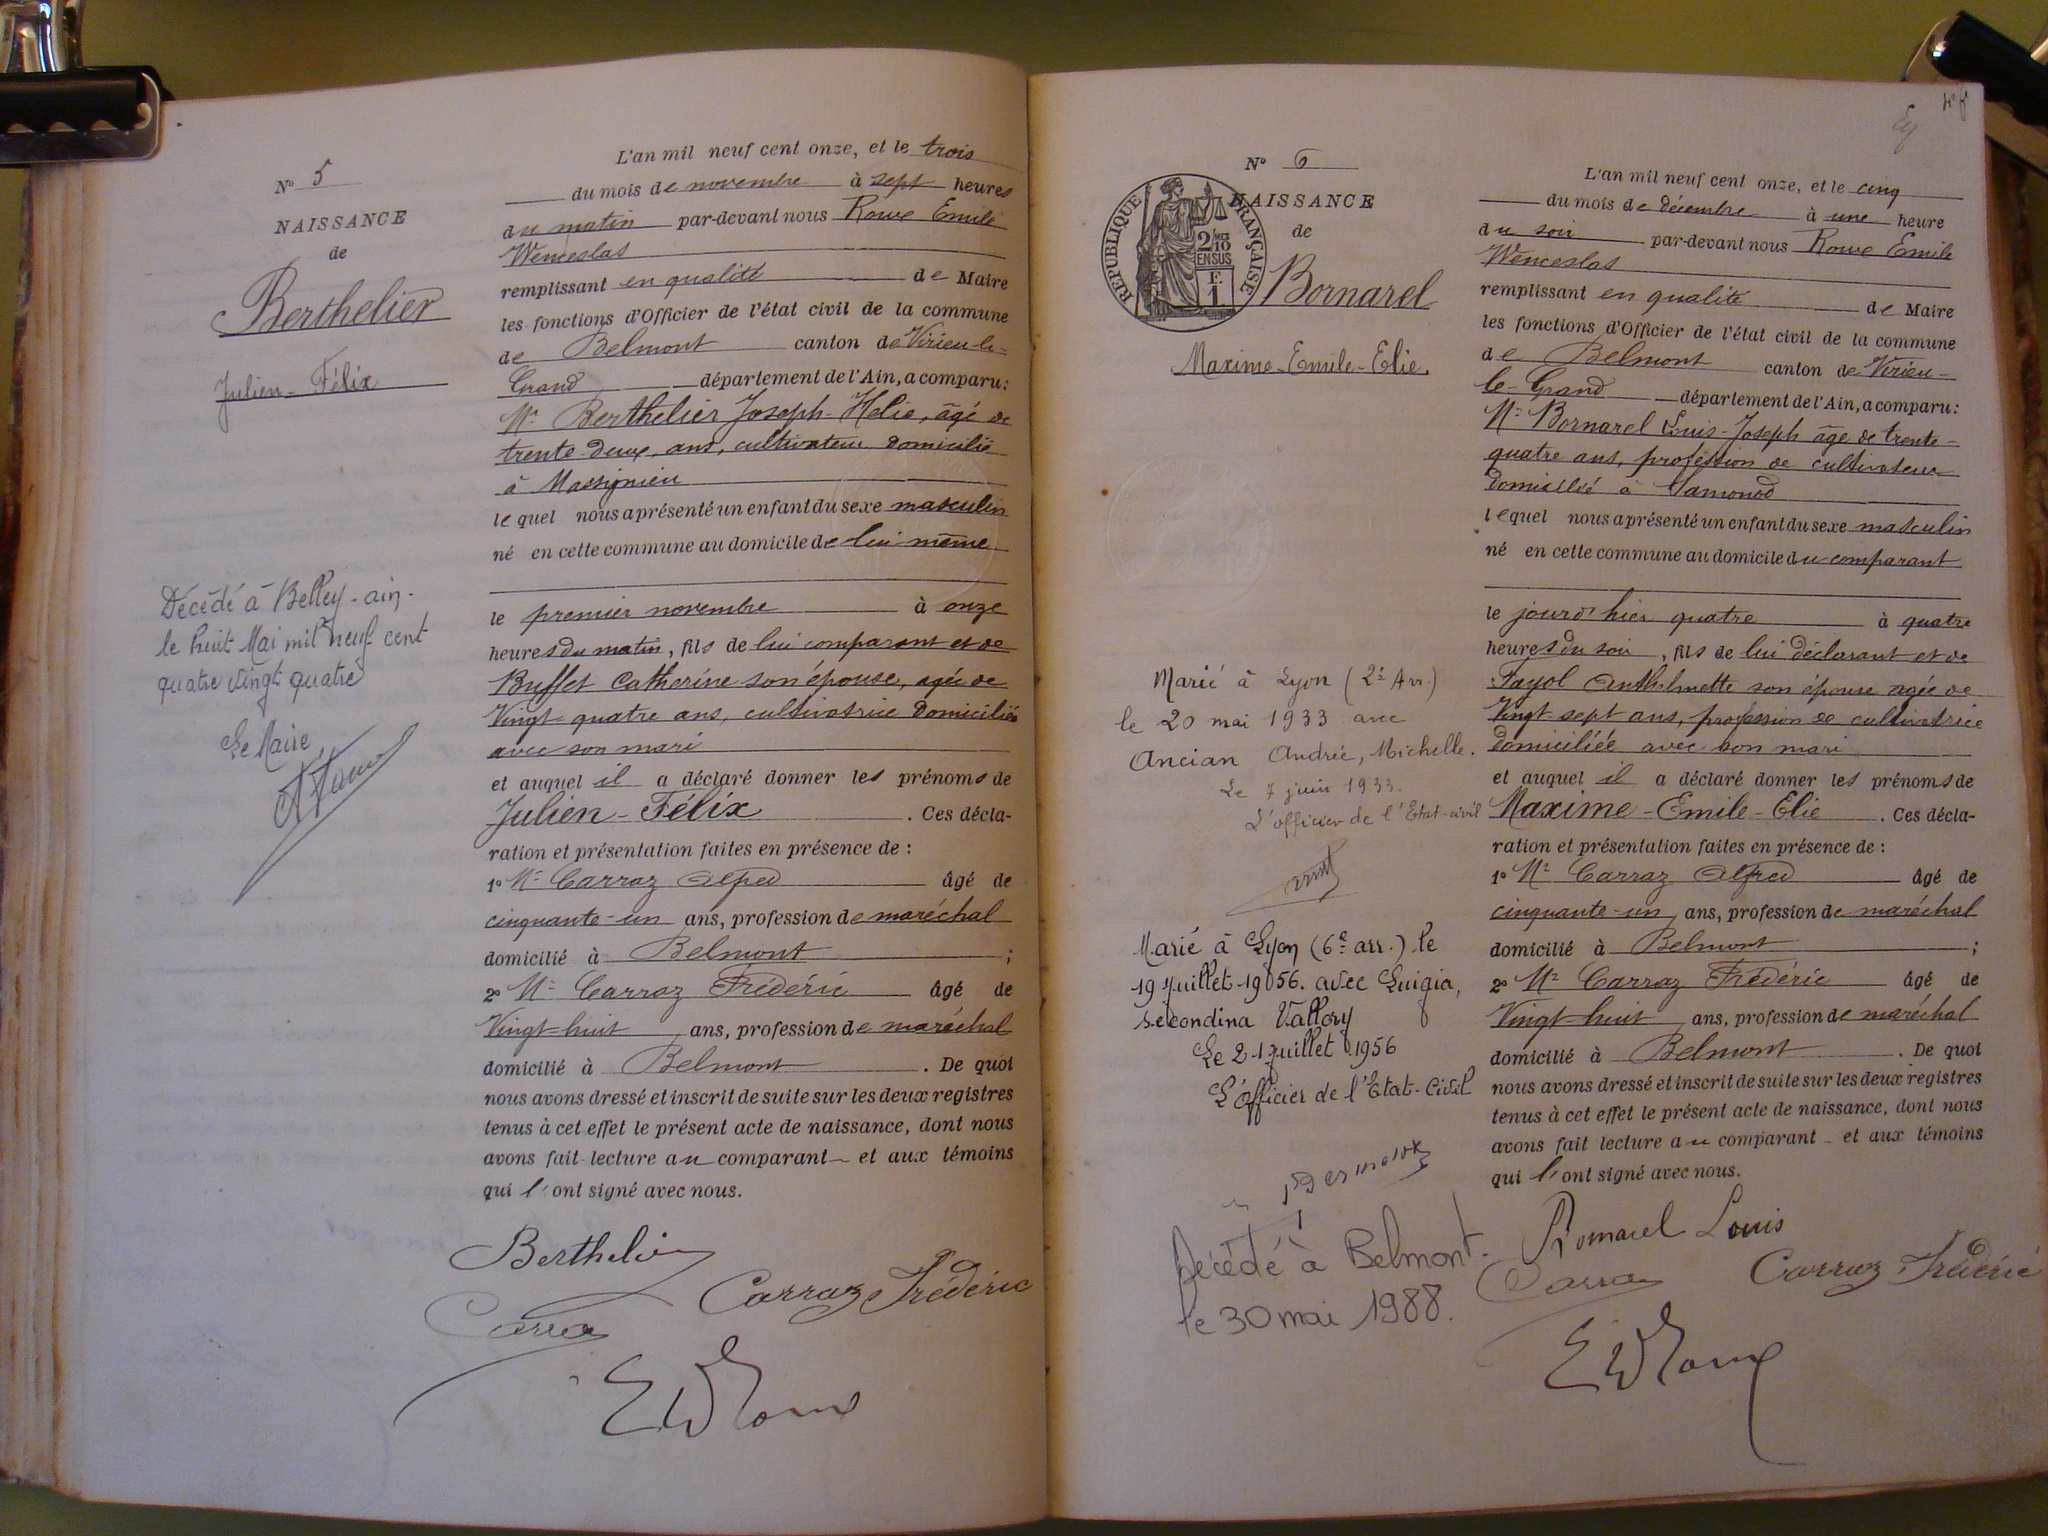 N° 5
NAISSANCE
de
Berthelier
Julien-Félix
Décédé à Belley-ain-
le huit Mai mil neuf cent
quatre vingt quatre
Le Maire
L'an mil neuf cent onze, et le trois
du mois de novembre à sept heures
du matin par-devant nous Roux Emile
Wenceslas
remplissant en qualité de Maire
les fonctions d'Officier de l'état civil de la commune
de Belmont canton de Virieu-le-
Grand département de l'Ain, a comparu:
Mr Berthelier Joseph-Hélie, âgé de
trente-deux ans, cultivateur domicilié
à Massignieu
lequel nous a présenté un enfant du sexe masculin
né en cette commune au domicile de lui même
le premier novembre à onze
heures du matin, fils de lui comparant et de
Buffet Catherine son épouse, agée de
Vingt quatre ans, cultivatrice domiciliée
avec son mari
et auquel il a déclaré donner les prénoms de
Julien-Félix. Ces décla-
ration et présentation faites en présence de :
1° Mr Carraz Alfred âgé de
cinquante-un ans, profession de maréchal
domicilié à Belmont ;
2° Mr Carraz Frédéric âgé de
Vingt-huit ans, profession de maréchal
domicilié à Belmont. De quoi
nous avons dressé et inscrit de suite sur les deux registres
tenus à cet effet le présent acte de naissance, dont nous
avons fait lecture au comparant et aux témoins
qui l'ont signé avec nous.
Berthelier
Carraz Frédéric
Carraz
EWRoux
N° 6
NAISSANCE
de
RÉPUBLIQUE FRANÇAISE
2/10
EN SUS
F.
1
Bornarel
Maxime-Emile-Elie.
Marié à Lyon (2e Arr.)
le 20 mai 1933 avec
Ancian Andrée, Michelle.
Le 7 juin 1933.
L'officier de l'Etat-civil
Marié à Lyon (6e arr.) le
19 juillet 1956. avec Luigia,
secondina Vallory
Le 21 juillet 1956
L'officier de l'Etat-Civil
Décédé à Belmont.
le 30 mai 1988.
L'an mil neuf cent onze, et le cinq
du mois de décembre à une heure
du soir par-devant nous Roux Emile
Wenceslas
remplissant en qualité de Maire
les fonctions d'Officier de l'état civil de la commune
de Belmont canton de Virieu-
le-Grand département de l'Ain, a comparu:
Mr Bornarel Louis-Joseph âge de trente-
quatre ans, profession de cultivateur
domicilié à Samonod
lequel nous a présenté un enfant du sexe masculin
né en cette commune au domicile du comparant
le jourd'hier quatre à quatre
heures du soir, fils de lui déclarant et de
Fayol Anthelmette son épouse agée de
Vingt-sept ans, profession de cultivatrice
domiciliée avec son mari
et auquel il a déclaré donner les prénoms de
Maxime-Emile-Elie. Ces décla-
ration et présentation faites en présence de :
1° Mr Carraz Alfred âgé de
cinquante-un ans, profession de maréchal
domicilié à Belmont ;
2° Mr Carraz Frédéric âgé de
Vingt-huit ans, profession de maréchal
domicilié à Belmont. De quoi
nous avons dressé et inscrit de suite sur les deux registres
tenus à cet effet le présent acte de naissance, dont nous
avons fait lecture au comparant et aux témoins
qui l'ont signé avec nous.
Bornarel Louis
Carraz
Carraz Frédéric
EWRoux